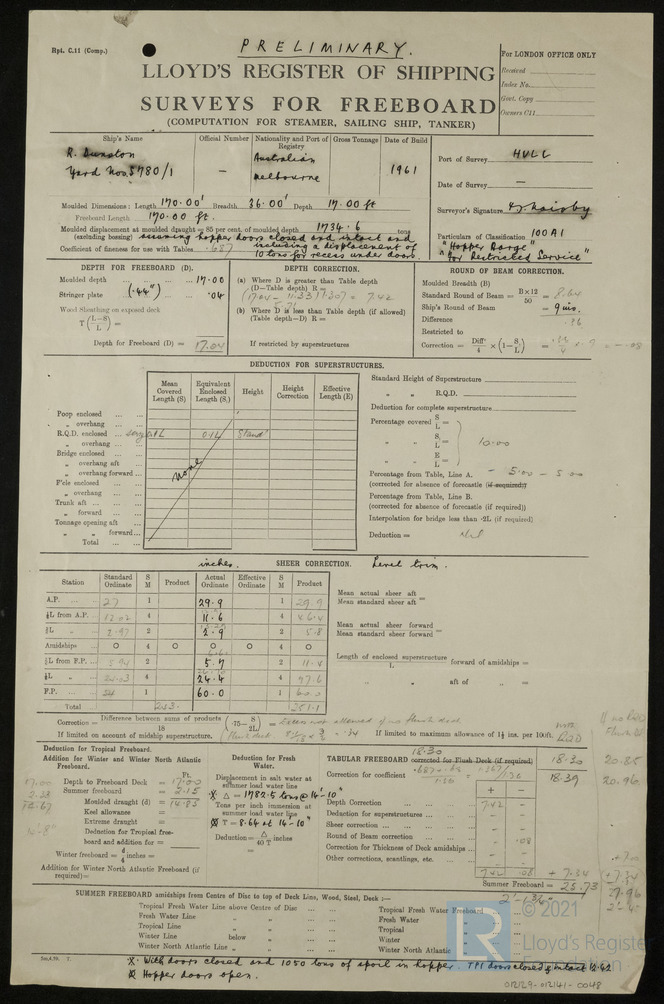 Rpt. C.11 (Comp.)
PRELIMINARY.
LLOYD'S REGISTER OF SHIPPING
SURVEYS FOR FREEBOARD
(COMPUTATION FOR STEAMER, SAILING SHIP, TANKER)
For LONDON OFFICE ONLY
Received
Index No.
Govt. Copy
Owners C11
Ship's Name
Official Number
Nationality and Port of Registry
Gross Tonnage
Date of Build
R. Dunston
Yard Nos. S780/1
–
Australian
Melbourne
1961
Port of Survey HULL
Date of Survey –
Surveyor's Signature
Particulars of Classification 100A1
"Hopper Barge"
"For Restricted Service"
Moulded Dimensions: Length 170.00' Breadth 36.00' Depth 17.00 ft
Freeboard Length 170.00 ft.
Moulded displacement at moulded draught = 85 per cent. of moulded depth 1734.6 tons
(excluding bossing) assuming hopper doors closed and intact and
including a displacement of
Coefficient of fineness for use with Tables .687 10 tons for recess under doors.
DEPTH FOR FREEBOARD (D).
Moulded depth ... ... ... 17.00
Stringer plate (.44") ... .04
Wood Sheathing on exposed deck
T (L–S / L) =
Depth for Freeboard (D) = 17.04
DEPTH CORRECTION.
(a) Where D is greater than Table depth
(D–Table depth) R =
(17.04 – 11.33) 1.307 = 7.42
5.71
(b) Where D is less than Table depth (if allowed)
(Table depth–D) R =
If restricted by superstructures
ROUND OF BEAM CORRECTION.
Moulded Breadth (B)
Standard Round of Beam = B×12 / 50 = 8.64
Ship's Round of Beam = 9 ins.
Difference .36
Restricted to
Correction = Diffce / 4 × (1 – S₁ / L) = .36 / 4 × .9 = – .08
DEDUCTION FOR SUPERSTRUCTURES.
Mean Covered Length (S)
Equivalent Enclosed Length (S₁)
Height
Height Correction
Effective Length (E)
Poop enclosed ... ...
„ overhang ... ...
R.Q.D. enclosed
„ overhang ... ...
Bridge enclosed ... ...
„ overhang aft ...
„ overhang forward ...
F'cle enclosed ... ...
„ overhang ... ...
Trunk aft ... ... ...
„ forward ... ...
Tonnage opening aft ...
„ „ forward ...
Total ... ...
None
Standard Height of Superstructure
„ „ R.Q.D.
Deduction for complete superstructure
Percentage covered S / L =
„ „ S₁ / L = 10.00
„ „ E / L =
Percentage from Table, Line A. – 5.00 – 5.00
(corrected for absence of forecastle (if required))
Percentage from Table, Line B.
(corrected for absence of forecastle (if required))
Interpolation for bridge less than ·2L (if required)
Deduction = Nil
inches.
SHEER CORRECTION. Level trim.
Station
Standard Ordinate
S M
Product
Actual Ordinate
Effective Ordinate
S M
Product
A.P. 27 1 29.9 1 29.9
⅙L from A.P. 12.02 4 11.6 4 46.4
⅓L „ 2.97 2 2.9 2 5.8
Amidships O 4 O O O 4 O
⅓L from F.P. 5.94 2 5.7 2 11.4
⅙L „ 24.03 4 24.4 4 97.6
F.P. 54 1 60.0 1 60.0
Total 243. 251.1
Mean actual sheer aft
Mean standard sheer aft =
Mean actual sheer forward
Mean standard sheer forward =
Length of enclosed superstructure / L forward of amidships =
„ aft of „ =
Correction = Difference between sums of products / 18 (·75 – S / 2L) = Excess not allowed if no flush deck
If limited on account of midship superstructure.
If limited to maximum allowance of 1½ ins. per 100ft.
Deduction for Tropical Freeboard.
Addition for Winter and Winter North Atlantic Freeboard.
Ft.
Depth to Freeboard Deck = 17.00
Summer freeboard = 2.15
Moulded draught (d) = 14.85
Keel allowance =
Extreme draught =
Deduction for Tropical freeboard and addition for =
Winter freeboard = d / 4 inches =
Addition for Winter North Atlantic Freeboard (if required)=
17.00
2.33
14.67
Deduction for Fresh Water.
Displacement in salt water at summer load water line
Δ = 1782.5 tons @ 14'-10"
Tons per inch immersion at summer load water line
T = 8.64 at 14'-10"
Deduction = Δ / 40 T inches
=
=
18.30
TABULAR FREEBOARD corrected for Flush Deck (if required) 18.30
Correction for coefficient .687 + .68 / 1.36 = 1.367 / 1.36 18.39
+ –
Depth Correction ... 7.42 –
Deduction for superstructures ... – –
Sheer correction ... – –
Round of Beam correction ... – .08
Correction for Thickness of Deck amidships ... – –
Other corrections, scantlings, etc. ... – –
7.42 .08 + 7.34
Summer Freeboard = 25.73
2'-1¾"
If no RQD
20.85
20.96
+7.34
SUMMER FREEBOARD amidships from Centre of Disc to top of Deck Line, Wood, Steel, Deck :–
Tropical Fresh Water Line above Centre of Disc
Fresh Water Line „ „
Tropical Line „ „
Winter Line below „
Winter North Atlantic Line „ „
Tropical Fresh Water Freeboard
Fresh Water „
Tropical „
Winter „
Winter North Atlantic „
With doors closed and 1050 tons of spoil in hopper TPI doors closed & intact 12.42
Hopper doors open.
© 2021
Lloyd's Register
Foundation
012129-012141-0048